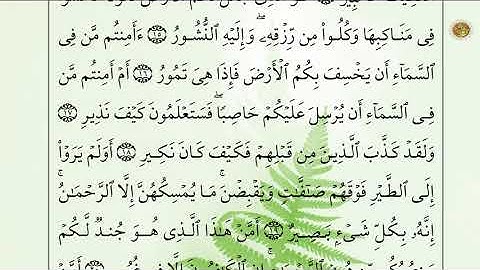 فِى مَنَاكِبِهَا وَكُلُوا۟ مِن رِّزْقِهِۦ ۖ وَإِلَيْهِ ٱلنُّشُورُ ١٥ ءَأَمِنتُم مَّن فِى
ٱلسَّمَآءِ أَن يَخْسِفَ بِكُمُ ٱلْأَرْضَ فَإِذَا هِىَ تَمُورُ ١٦ أَمْ أَمِنتُم مَّن
فِى ٱلسَّمَآءِ أَن يُرْسِلَ عَلَيْكُمْ حَاصِبًا ۖ فَسَتَعْلَمُونَ كَيْفَ نَذِيرِ ١٧
وَلَقَدْ كَذَّبَ ٱلَّذِينَ مِن قَبْلِهِمْ فَكَيْفَ كَانَ نَكِيرِ ١٨ أَوَلَمْ يَرَوْا۟
إِلَى ٱلطَّيْرِ فَوْقَهُمْ صَـٰٓفَّـٰتٍ وَيَقْبِضْنَ ۚ مَا يُمْسِكُهُنَّ إِلَّا ٱلرَّحْمَـٰنُ ۚ
إِنَّهُۥ بِكُلِّ شَىْءٍۭ بَصِيرٌ ١٩ أَمَّنْ هَـٰذَا ٱلَّذِى هُوَ جُندٌ لَّكُمْ